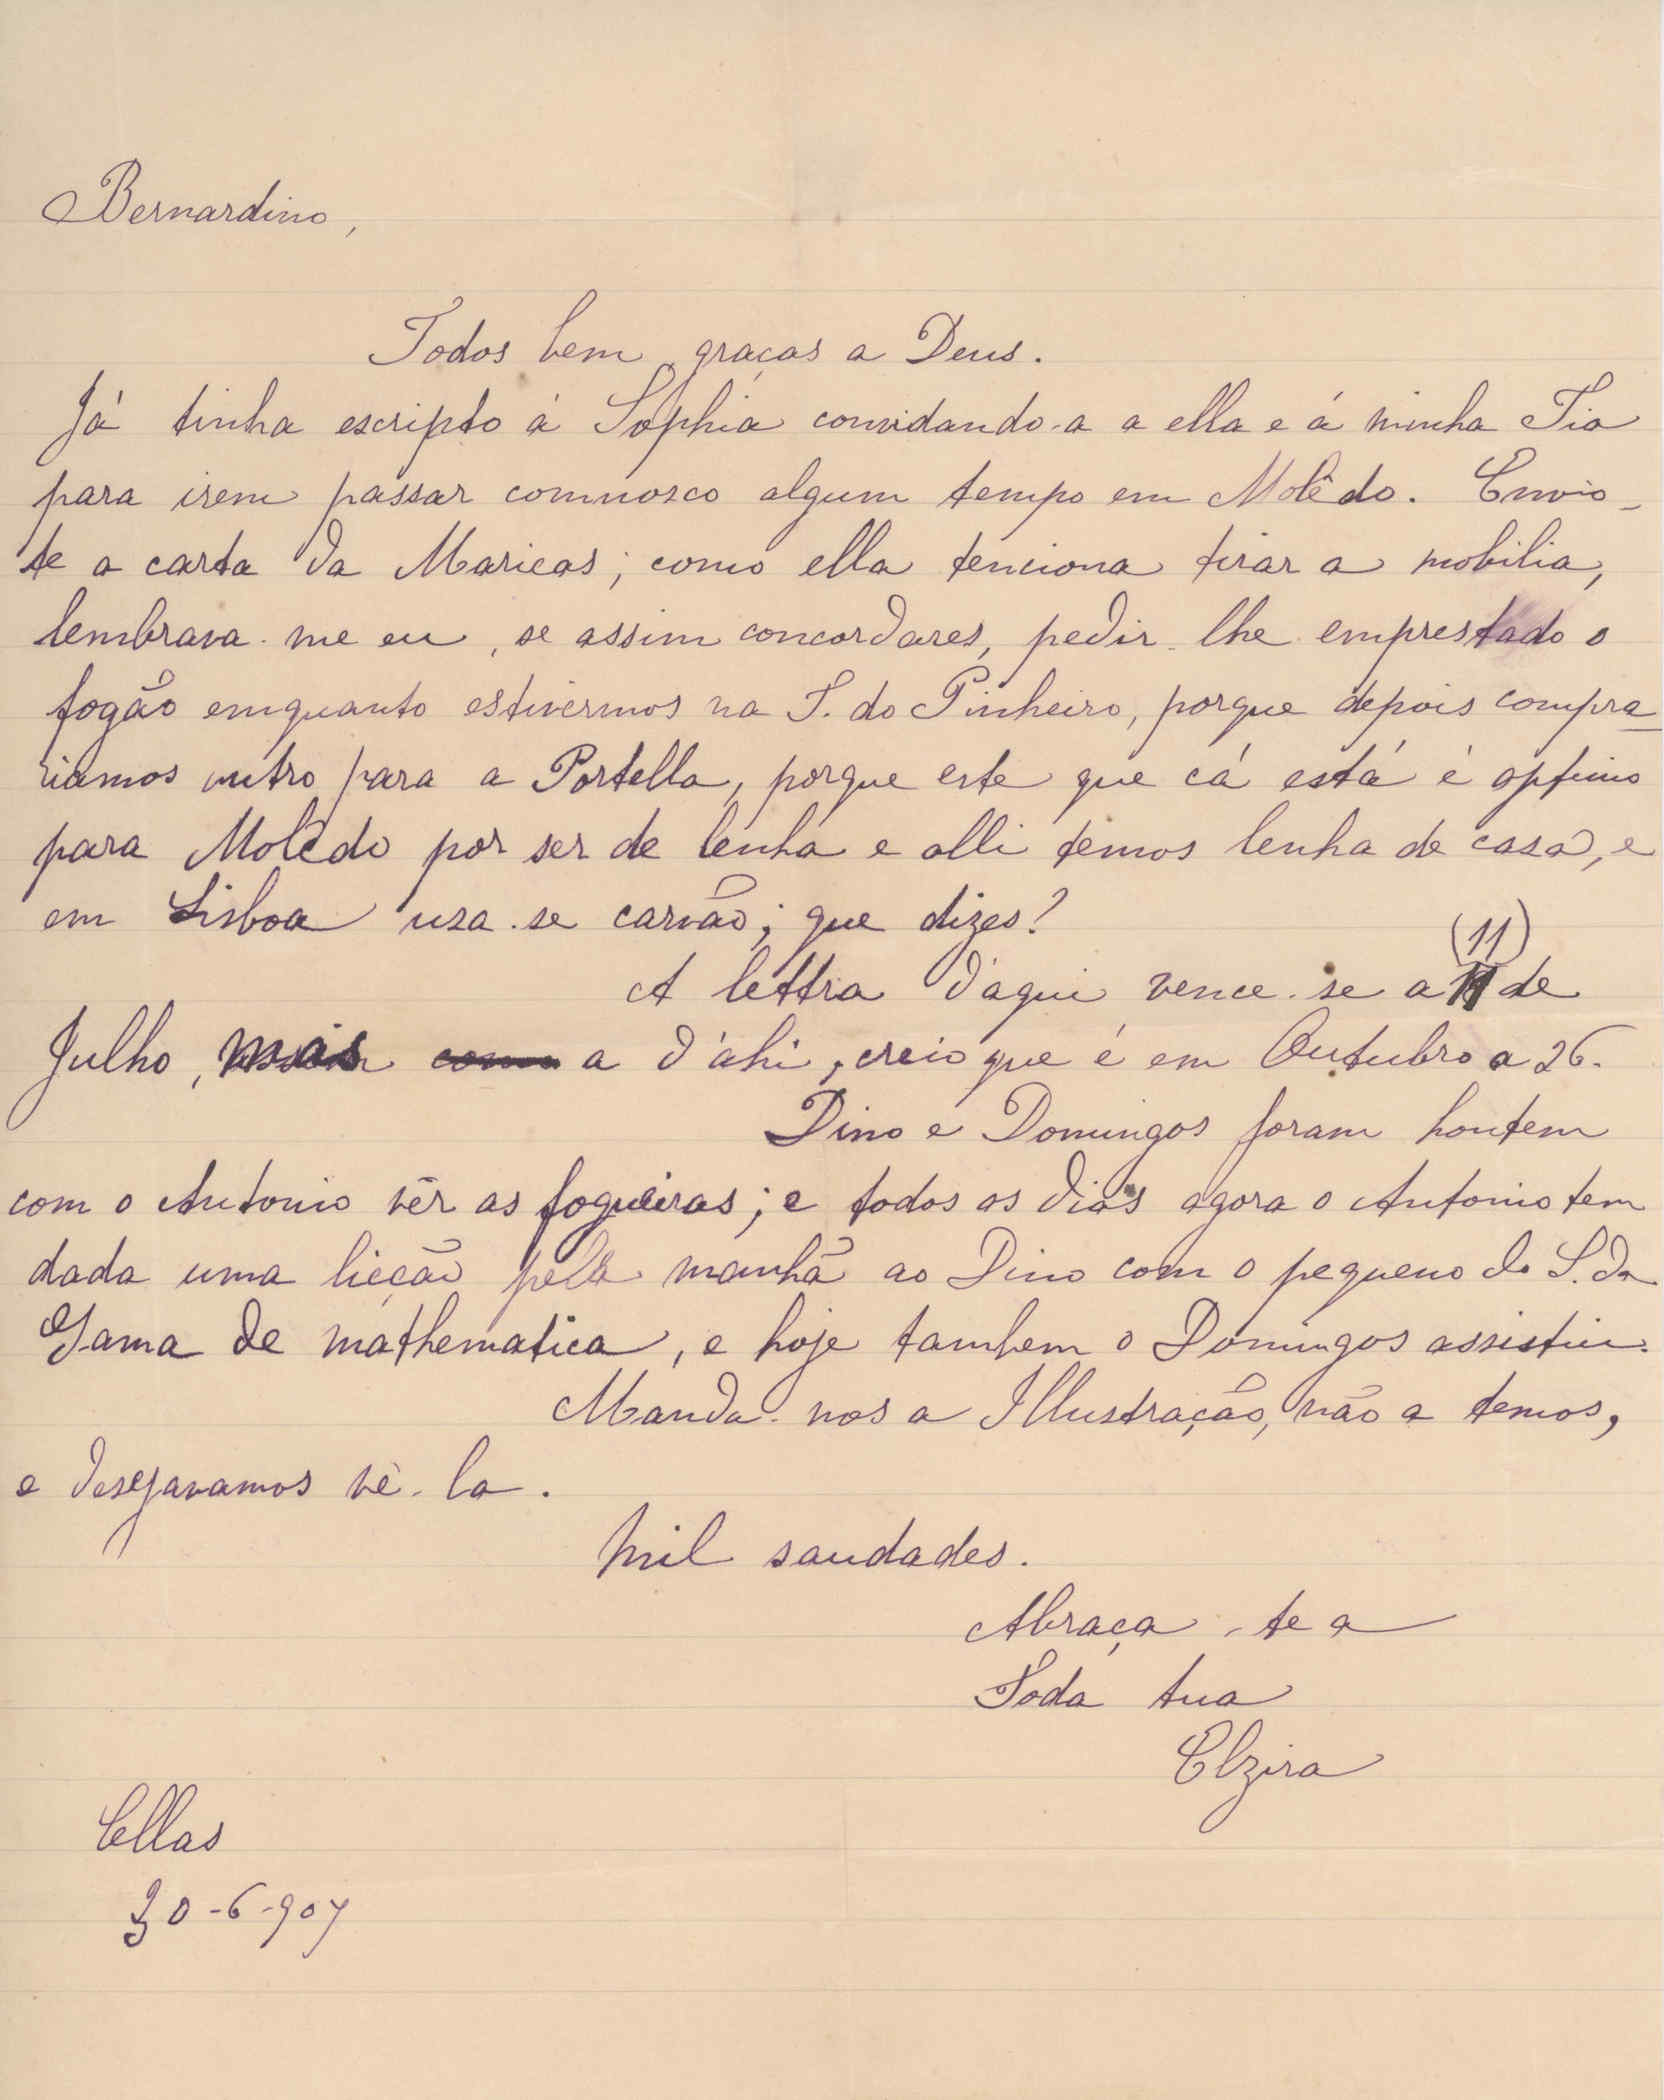 Bernardino,
Todos bem, graças a Deus.
Já tinha escripto á Sophia convidando-a a ella e á minha Tia
para irem passar comnosco algum tempo em Molêdo. Envio-
te a carta da Maricas; como ella tenciona tirar a mobilia,
lembrava-me eu, se assim concordares, pedir-lhe emprestado o
fogão emquanto estivermos na T. do Pinheiro, porque depois compra-
riamos outro para a Portella, porque este que cá está é optimo
para Molêdo por ser de lenha e alli temos lenha de casa, e
em Lisboa usa-se carvão; que dizes?
(11)
A lettra d'aqui vence-se a 11 de
Julho, mas a d'ahi, creio que é em Outubro a 26.
Dino e Domingos foram hontem
com o Antonio vêr as fogueiras; e todos os dias agora o Antonio tem
dada uma licção pela manhã ao Dino com o pequeno do S. da
Gama de mathematica, e hoje tambem o Domingos assistiu.
Manda-nos a Illustração, não a temos,
e desejavamos vê-la.
Mil saudades.
Abraça-te a
Toda tua
Elzira
Cellas
30-6-907